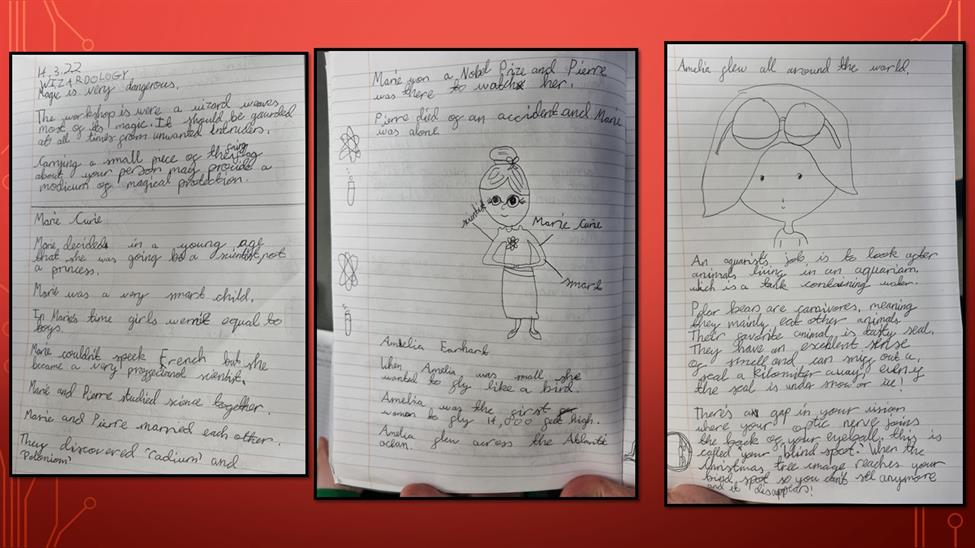 14.3.22
WIZARDOLOGY
Magic is very dangerous.
The workshop is were a wizard weaves
most of its magic. It should be gaurded
at all times from unwanted intruders.
Carrying a small piece of
about your person may provide a
modicum of magical protection.
Marie Curie
Marie decided in a young age
that she was going be a scientist, not
a princess.
Marie was a very smart child.
In Marie's time girls weren't equal to
boys.
Marie couldn't speek French but she
became a very scientist.
Marie and Pierre studied science together.
Marie and Pierre married each other.
They discovered "cadium" and
Polonium"
Marie won a Nobel Prize and Pierre
was there to watch her.
Pierre died of an accident and Marie
was alone.
scientist
Marie Curie
smart
Amelia Earhart
When Amelia, was small she
wanted to fly like a bird.
Amelia was the first
woman to fly 14,000 feet high.
Amelia flew across the Atlantic
ocean.
Amelia flew all around the world.
An aquarists, job, is to look after
animals living in an aquarium,
wich is a tank containing water.
Polar bears are carnivores, meaning
they mainly eat other animals
Their favorite animal is tasty seal.
They have an excelent sense
of smell and can snif out a,
seal a kilometer away, even if
the seal is under snow or ice!
There's a gap in your vision
where your optic nerve joins
the back of your eyeball, this is
called your "blind spot". When the
christmas tree image reaches your
blind spot so you can't see anymore
and it disappears!